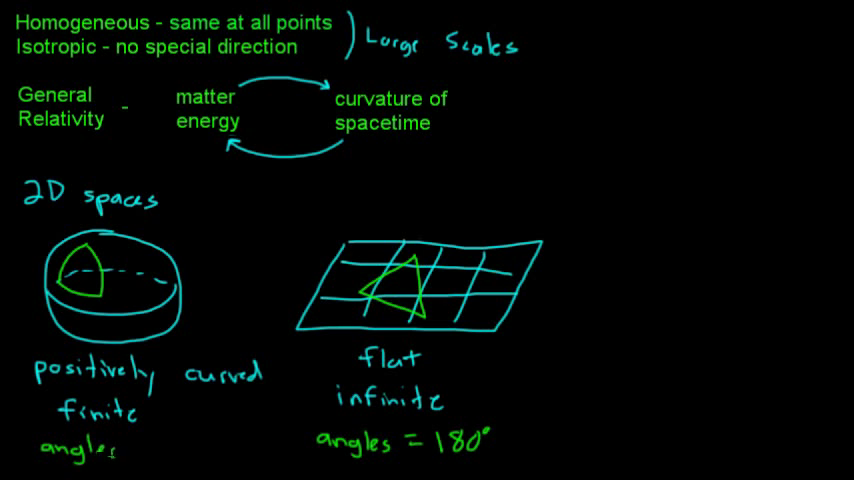 Homogeneous - same at all points
Isotropic - no special direction
Large Scales
General Relativity - matter energy
curvature of spacetime
2D spaces
positively curved
finite
angles
flat
infinite
angles = 180°